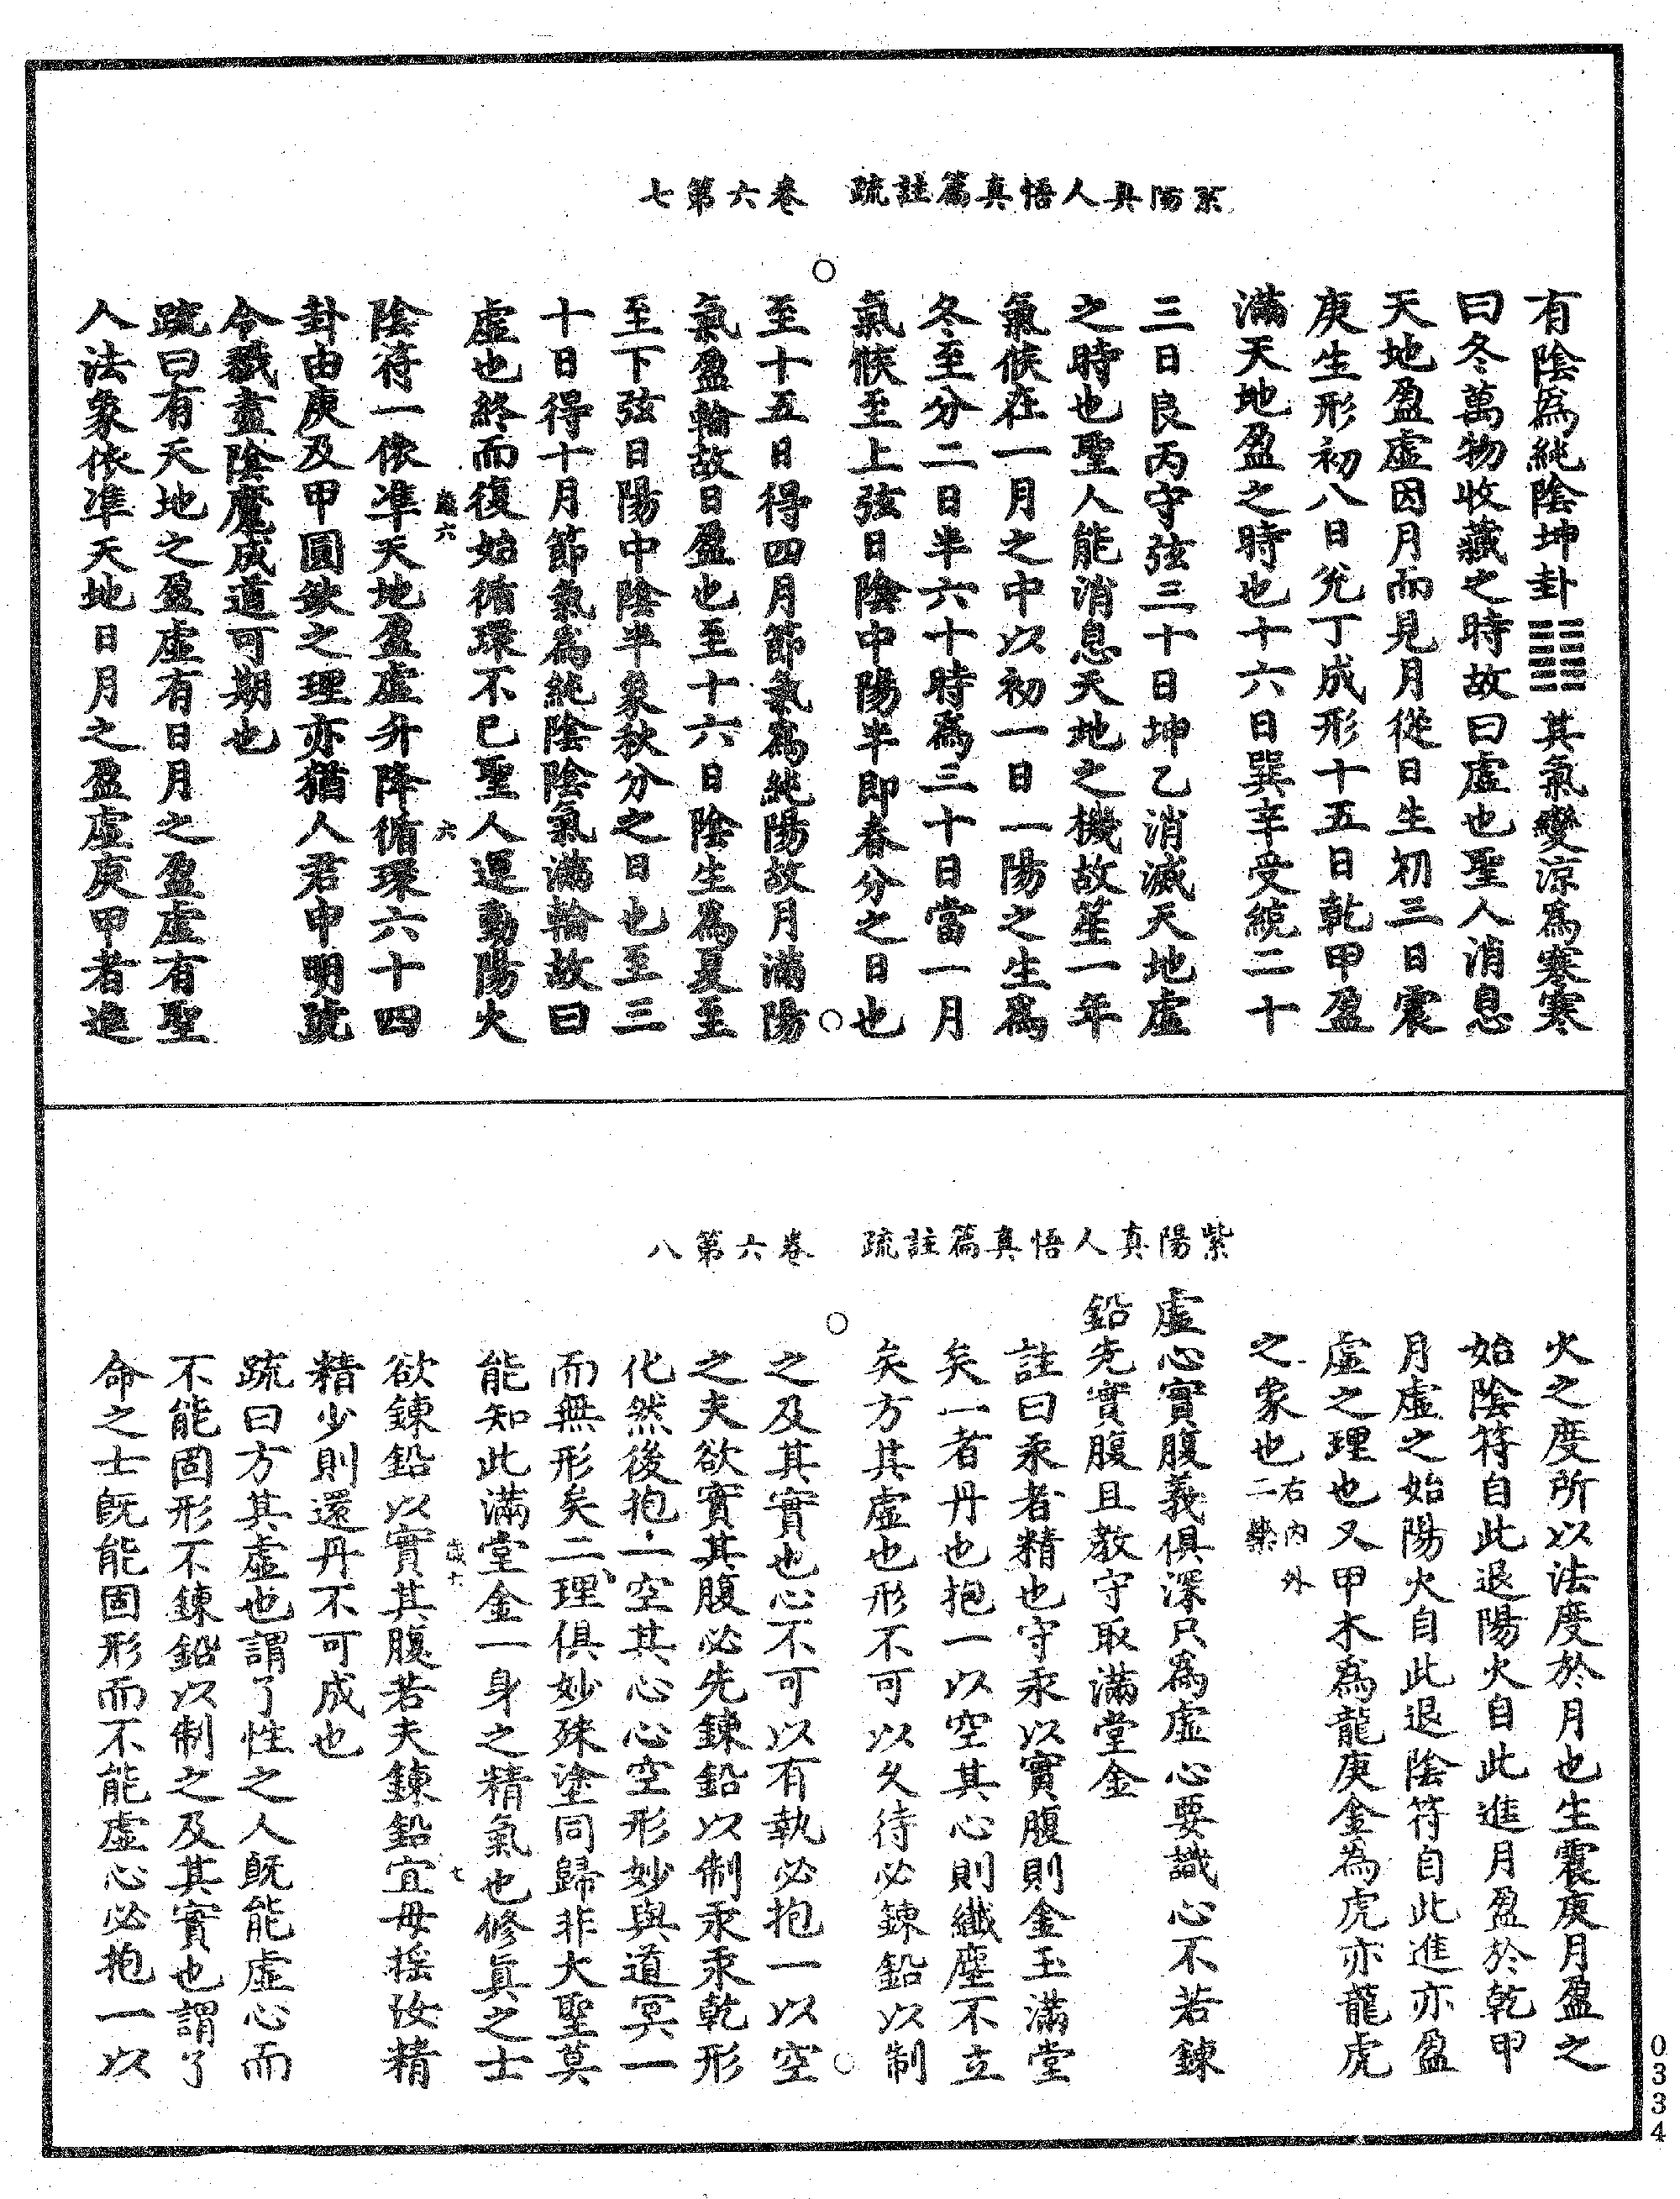 紫陽真人悟真篇註疏　卷六第七
有陰為純陰坤卦䷁其氣變涼為寒寒
曰冬萬物收藏之時故曰虛也聖人消息
天地盈虛因月而見月從日生初三日震
庚生形初八日兊丁成形十五日乾甲盈
滿天地盈之時也十六日巽辛受統二十
三日艮丙守弦三十日坤乙消滅天地虛
之時也聖人能消息天地之機故筀一年
氣候在一月之中以初一日一陽之生為
冬至分二日半六十時為三十日當一月
氣候至上弦日陰中陽半即春分之日也
至十五日得四月節氣為純陽故月滿陽
氣盈輪故日盈也至十六日陰生為夏至
至下弦日陽中陰半象秋分之日也至三
十日得十月節氣為純陰陰氣滿輪故曰
虛也終而復始循環不已聖人運動陽火
歲六　六
陰符一依準天地盈虛升降循環六十四
卦由庚及甲圓缺之理亦猶人君申明號
令戮盡陰魔成道可期也
疏曰有天地之盈虛有日月之盈虛有聖
人法象依準天地日月之盈虛庚甲者進
紫陽真人悟真篇註疏　卷六第八
火之度所以法度於月也生震庚月盈之
始陰符自此退陽火自此進月盈於乾甲
月虛之始陽火自此退陰符自此進亦盈
虛之理也又甲木為龍庚金為虎亦龍虎
之象也右內外二藥
虛心實腹義俱深只為虛心要識心不若鍊
鉛先實腹且教守取滿堂金
註曰汞者精也守汞以實腹則金玉滿堂
矣一者丹也抱一以空其心則纖塵不立
矣方其虛也形不可以久待必鍊鉛以制
之及其實也心不可以有執必抱一以空
之夫欲實其腹必先鍊鉛以制汞汞乾形
化然後抱一空其心心空形妙與道冥一
而無形矣二理俱妙殊塗同歸非大聖莫
能知此滿堂金一身之精氣也修真之士
歲六　七
欲鍊鉛以實其腹若夫鍊鉛宜毋搖汝精
精少則還丹不可成也
疏曰方其虛也謂了性之人既能虛心而
不能固形不鍊鉛以制之及其實也謂了
命之士既能固形而不能虛心必抱一以
0334